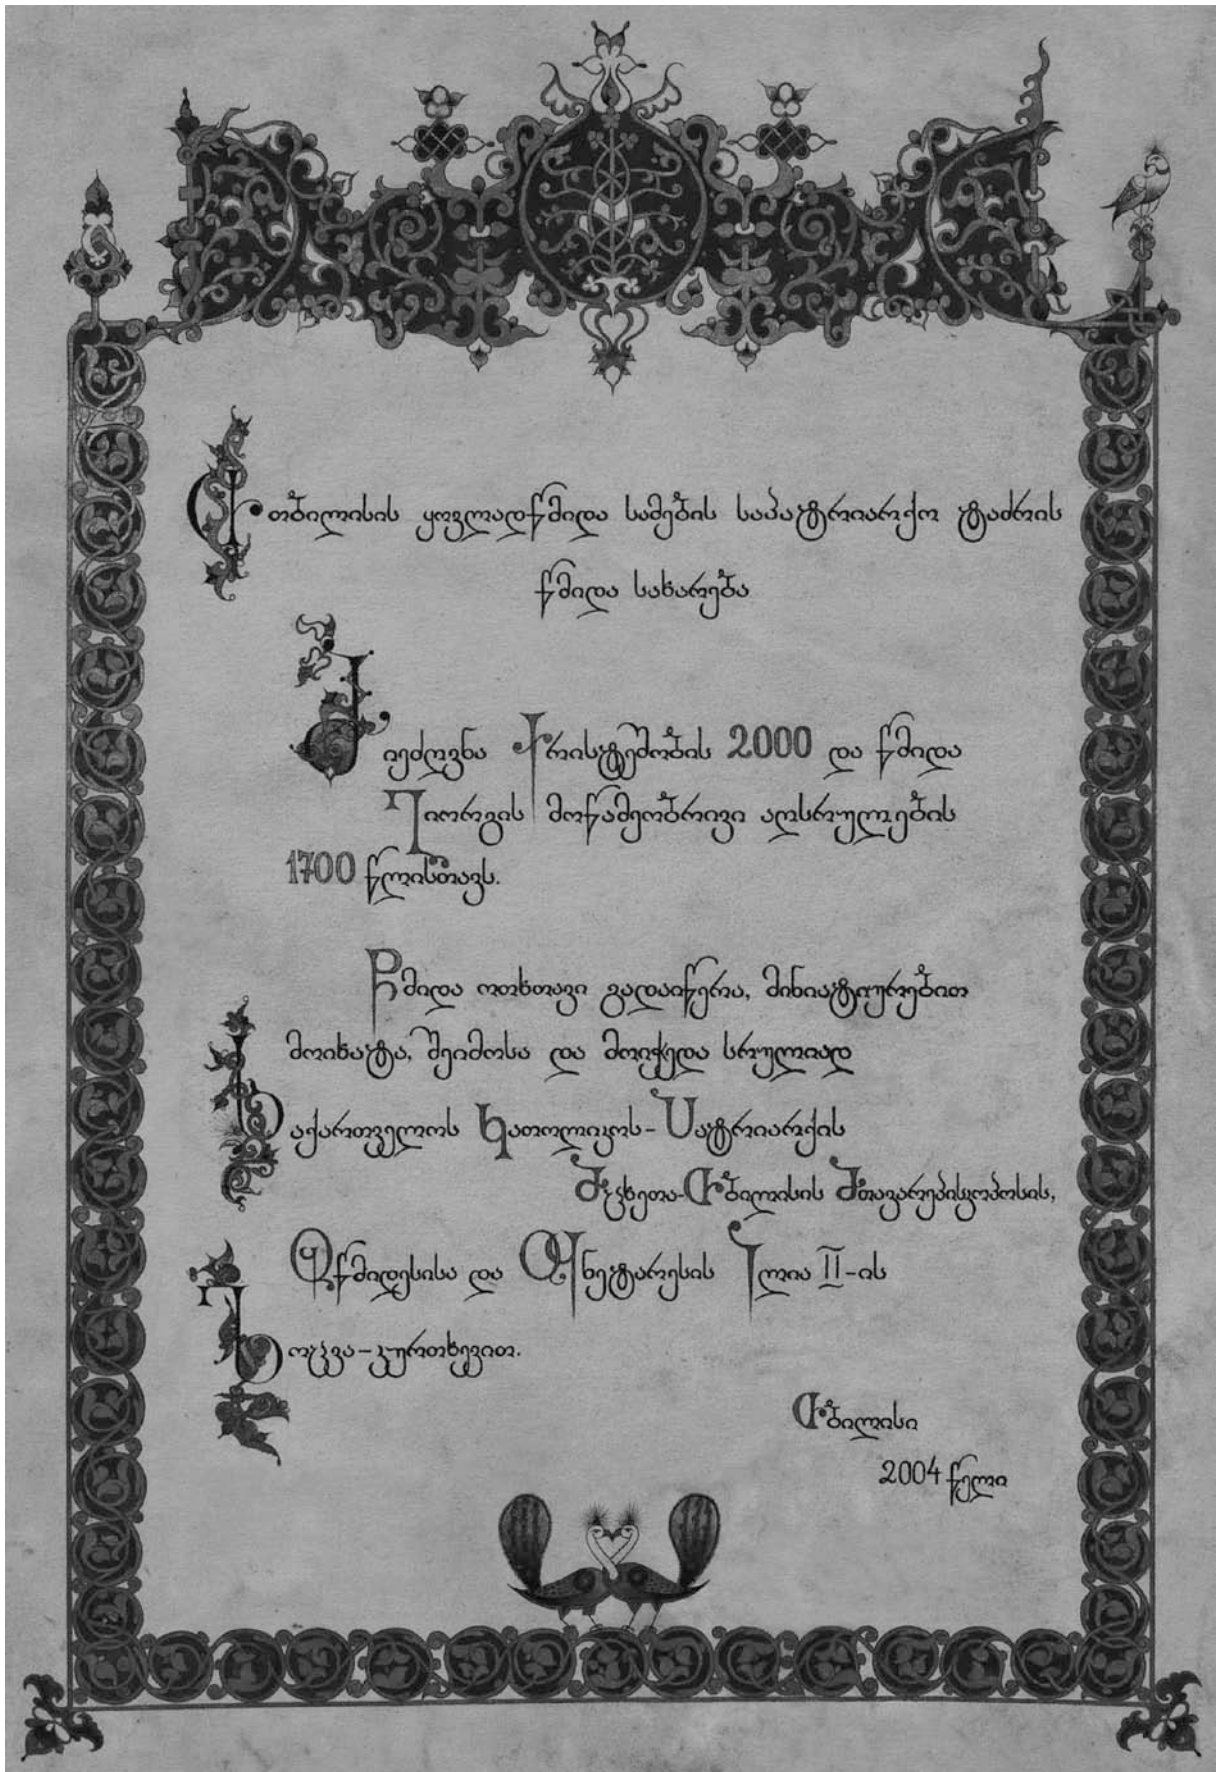 თბილისის ყოვლადწმიდა სამების საპატრიარქო ტაძრის
წმიდა სახარება
მიეძღვნა ქრისტეშობის 2000 და წმიდა
გიორგის მოწამეობრივი აღსრულების
1700 წლისთავს.
წმიდა ოთხთავი გადაიწერა, მინიატიურებით
მოიხატა, შეიმოსა და მოიჭედა სრულიად
საქართველოს კათოლიკოს-პატრიარქის
მცხეთა-თბილისის მთავარეპისკოპოსის,
უწმიდესისა და უნეტარესის ილია II-ის
ლოცვა-კურთხევით.
თბილისი
2004 წელი